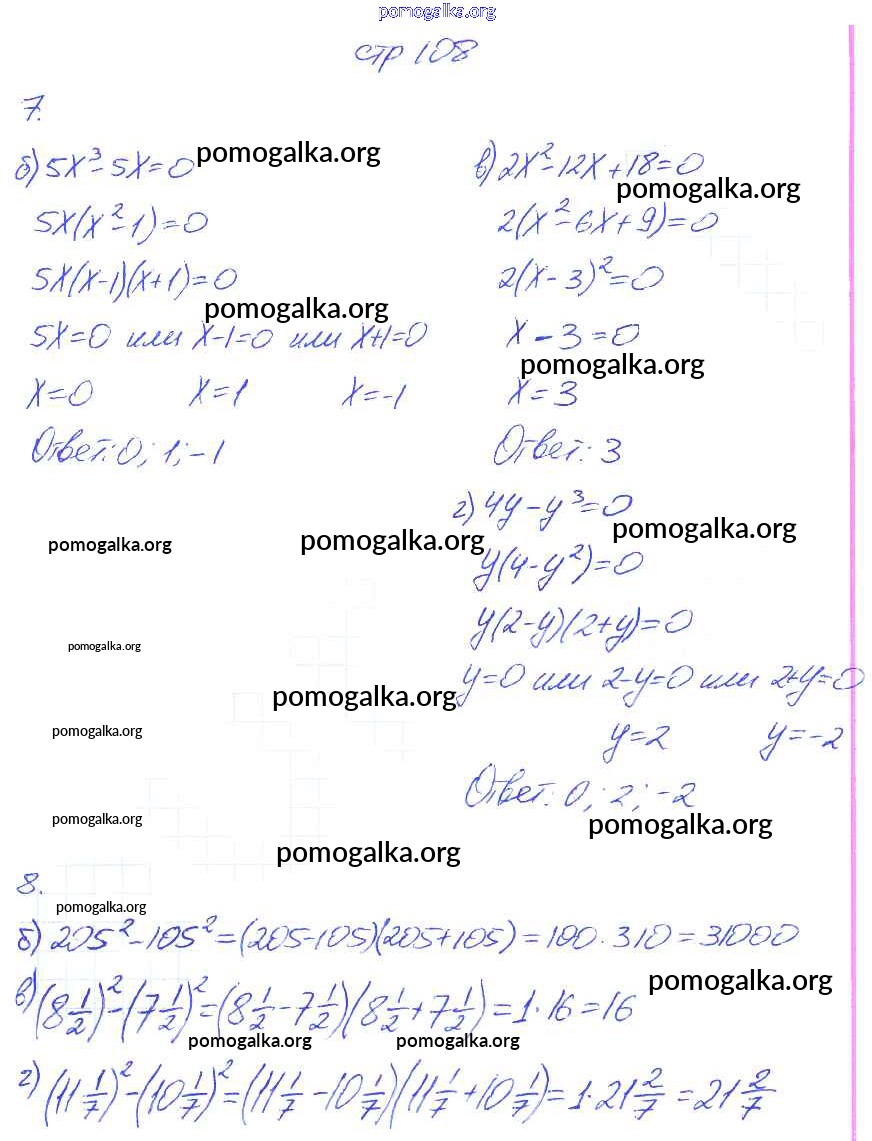 pomogalka.org
стр 108
7.
б) 5x³-5x=0 pomogalka.org
5x(x²-1)=0
5x(x-1)(x+1)=0
pomogalka.org
5x=0 или x-1=0 или x+1=0
x=0 x=1 x=-1
Ответ: 0; 1; -1
в) 2x²-12x+18=0
pomogalka.org
2(x²-6x+9)=0
2(x-3)²=0
x-3=0
pomogalka.org
x=3
Ответ: 3
г) 4y-y³=0
pomogalka.org pomogalka.org pomogalka.org
y(4-y²)=0
y(2-y)(2+y)=0
pomogalka.org
y=0 или 2-y=0 или 2+y=0
pomogalka.org
pomogalka.org
y=2 y=-2
Ответ: 0; 2; -2
pomogalka.org pomogalka.org
pomogalka.org
8.
pomogalka.org
б) 205²-105²=(205-105)(205+105)=100·310=31000
pomogalka.org
в) (8 1/2)²-(7 1/2)²=(8 1/2-7 1/2)(8 1/2+7 1/2)=1·16=16
pomogalka.org pomogalka.org
г) (11 1/7)²-(10 1/7)²=(11 1/7-10 1/7)(11 1/7+10 1/7)=1·21 2/7=21 2/7